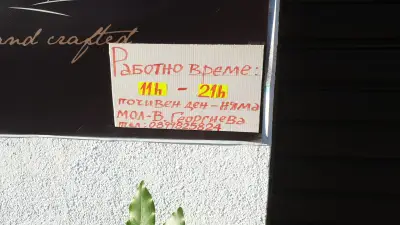 and crafted
Работно време:
11h - 21h
почивен ден - няма
МОЛ-В. Георгиева
тел: 0377825824